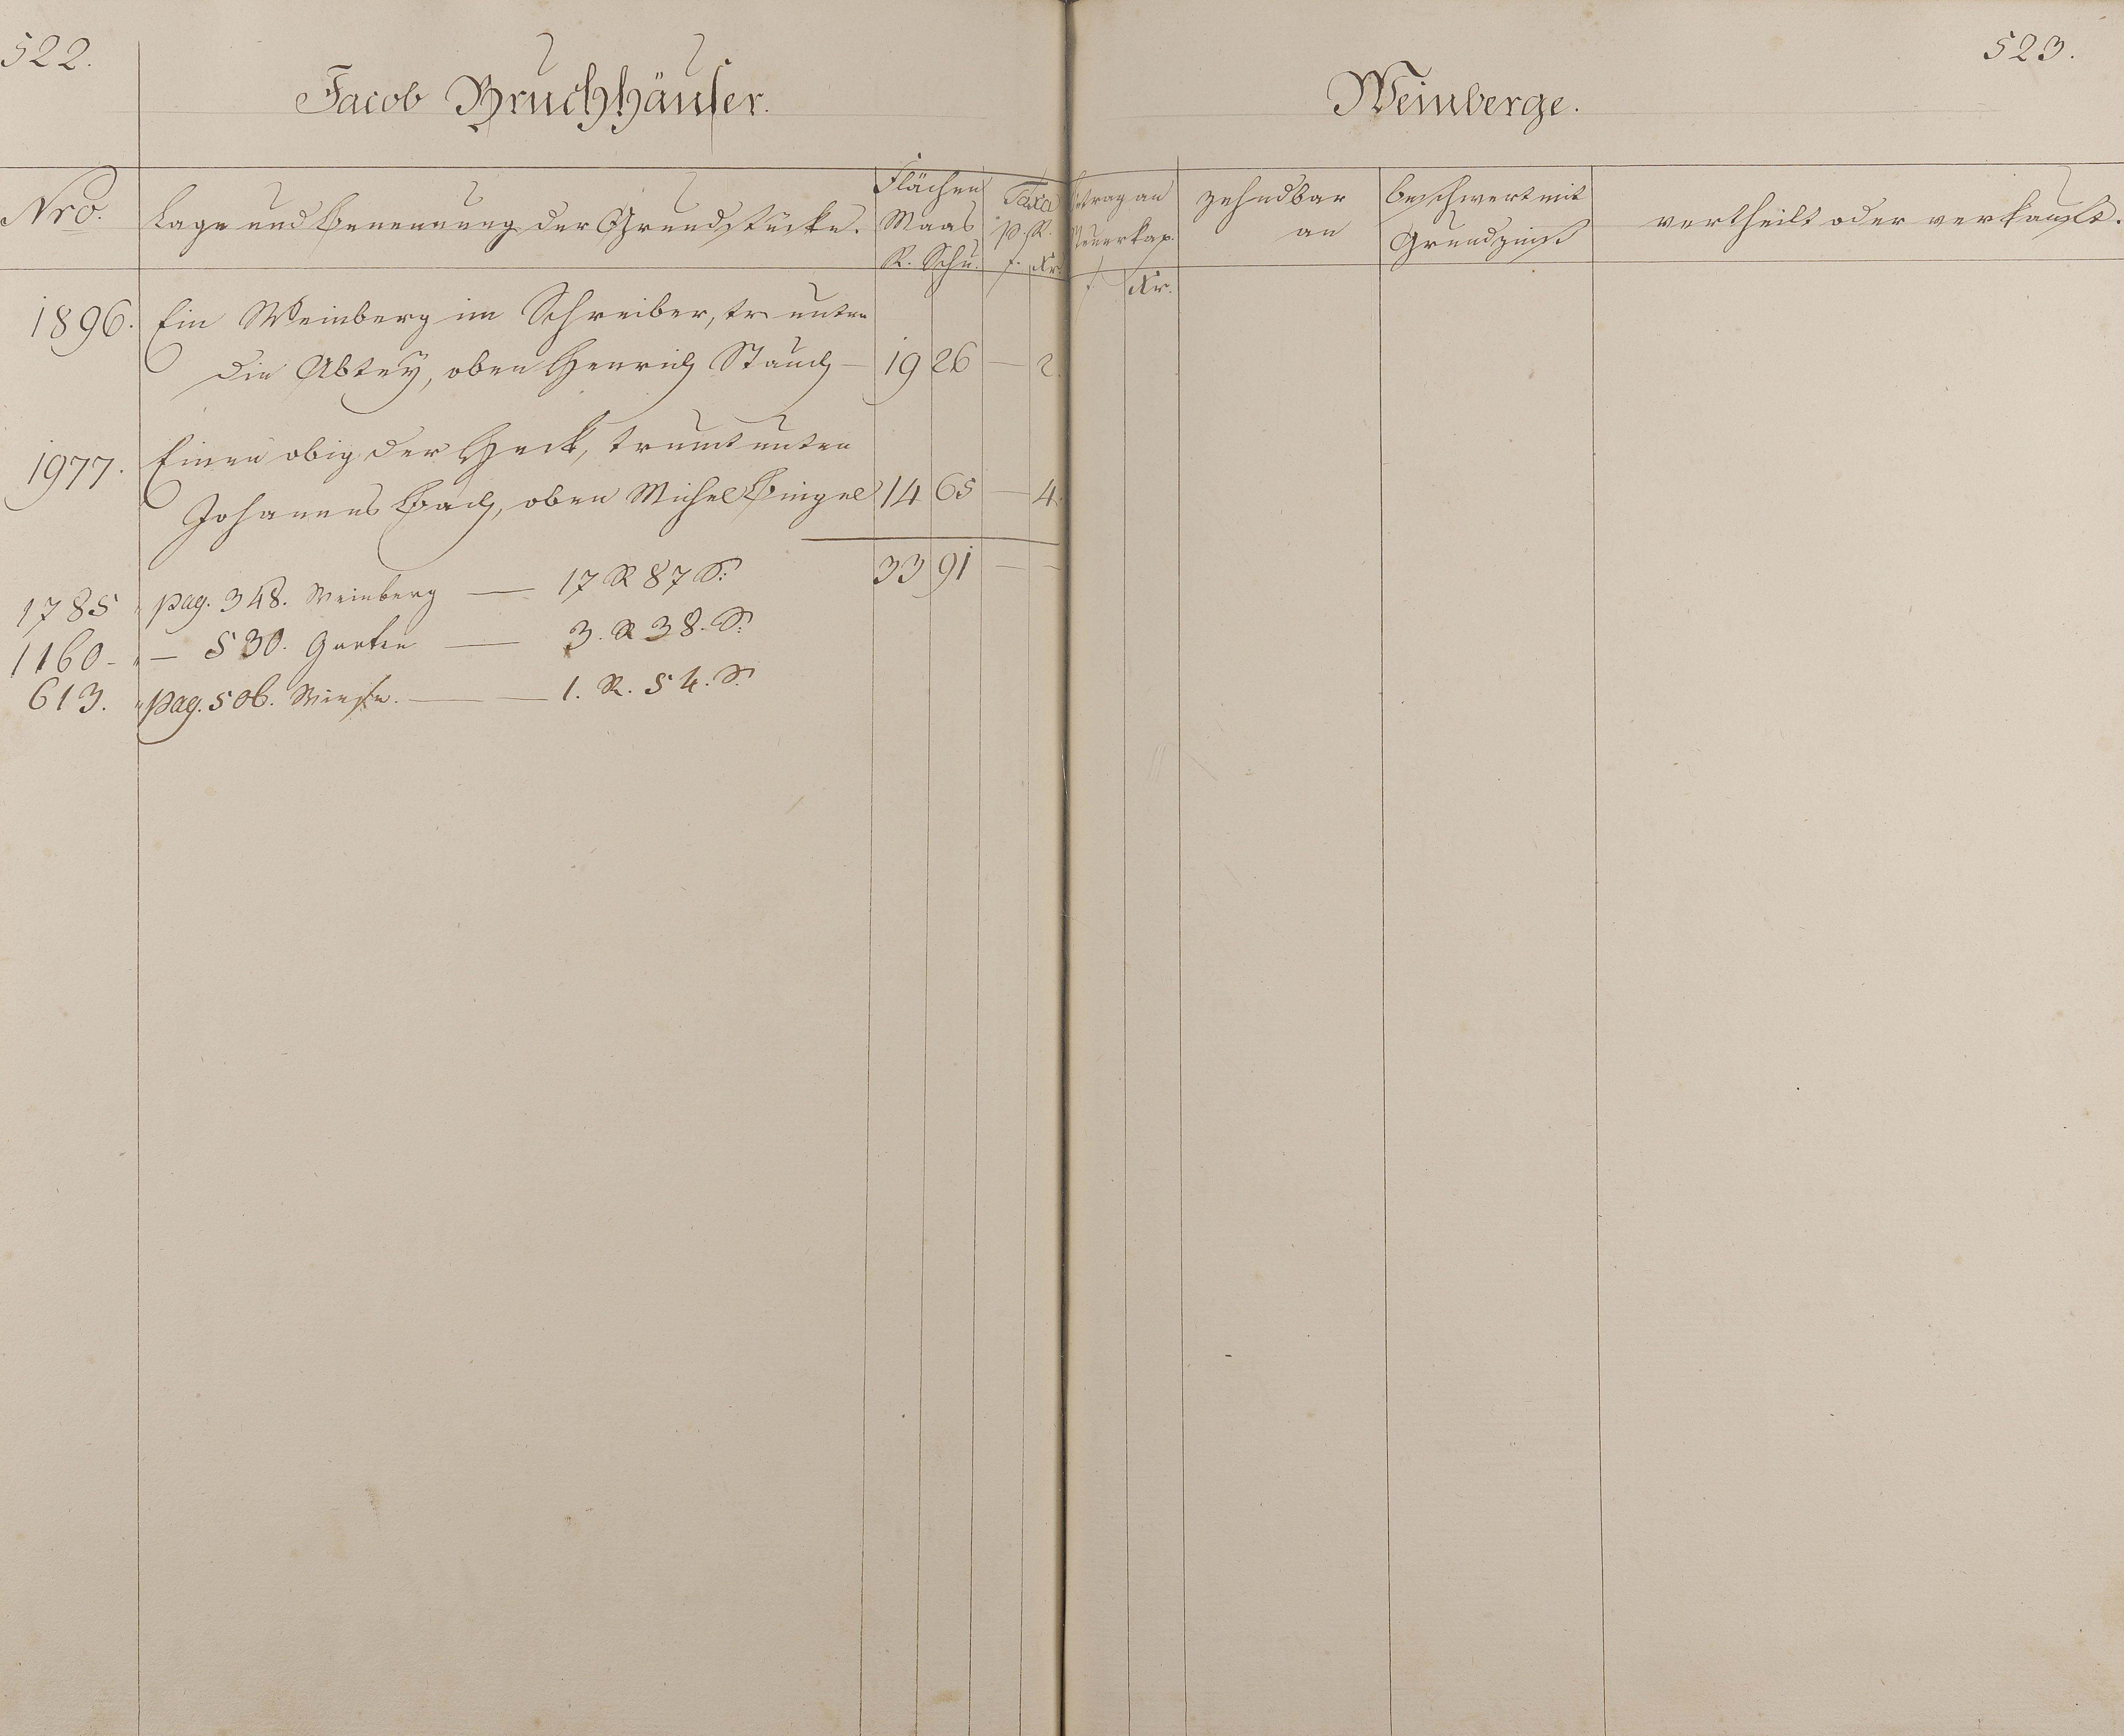 522.
Jacob Bruchhäuser.
Nro.
Lage und Benennung der Grundstücke.
Flächen
Maas
R. Schu.
Taxa
p. R.
f. Kr.
1896. Ein Weinberg im Schreiber, tr unten
die Abtey, oben Henrich Stauch — 19 26 — 2.
1977. Einen obig der Heck, trumt unten
Johannes Bach, oben Michel Bingel 14 65 — 4.
33 91 — —
1785 " pag. 348. Weinberg — 17 R 87 S:
1160 - " — 530. Garten — 3. R 38. S:
613. " pag. 506. Wiese. — 1. R. 54. S:
523.
Weinberge.
Betrag an
Steuerkap.
f. Kr.
zehndbar
an
beschwert mit
Grundzinß
vertheilt oder verkauft.